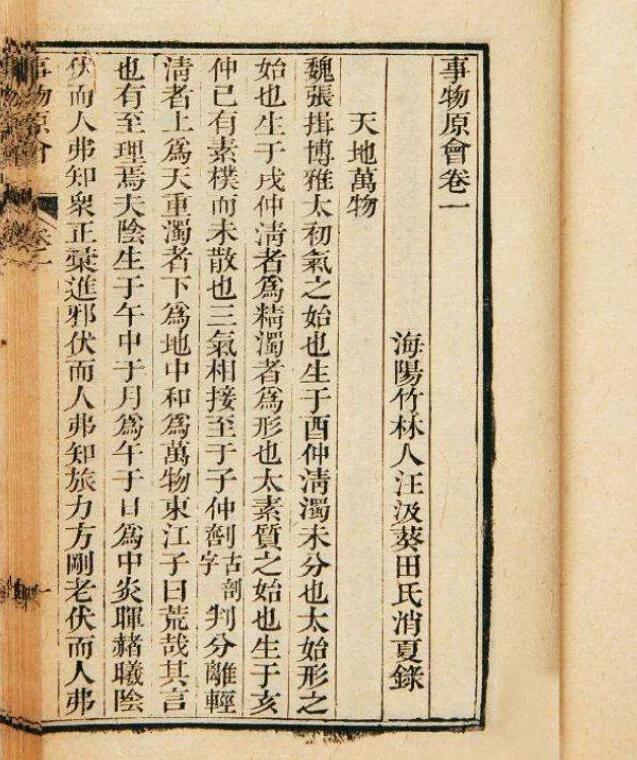 事物原會卷一
海陽竹林人汪汲葵田氏消夏錄
天地萬物
魏張揖博雅太初氣之始也生于酉仲淸濁未分也太始形之
始也生于戌仲淸者爲精濁者爲形也太素質之始也生于亥
仲已有素樸而未散也三氣相接至于子仲㓣古剖字判分離輕
淸者上爲天重濁者下爲地中和爲萬物東江子曰荒哉其言
也有至理焉夫陰生于午中于月爲午于日爲中炎暉赭曦陰
伏而人弗知衆正彙進邪伏而人弗知旅力方剛老伏而人弗
事物原會
卷一
一